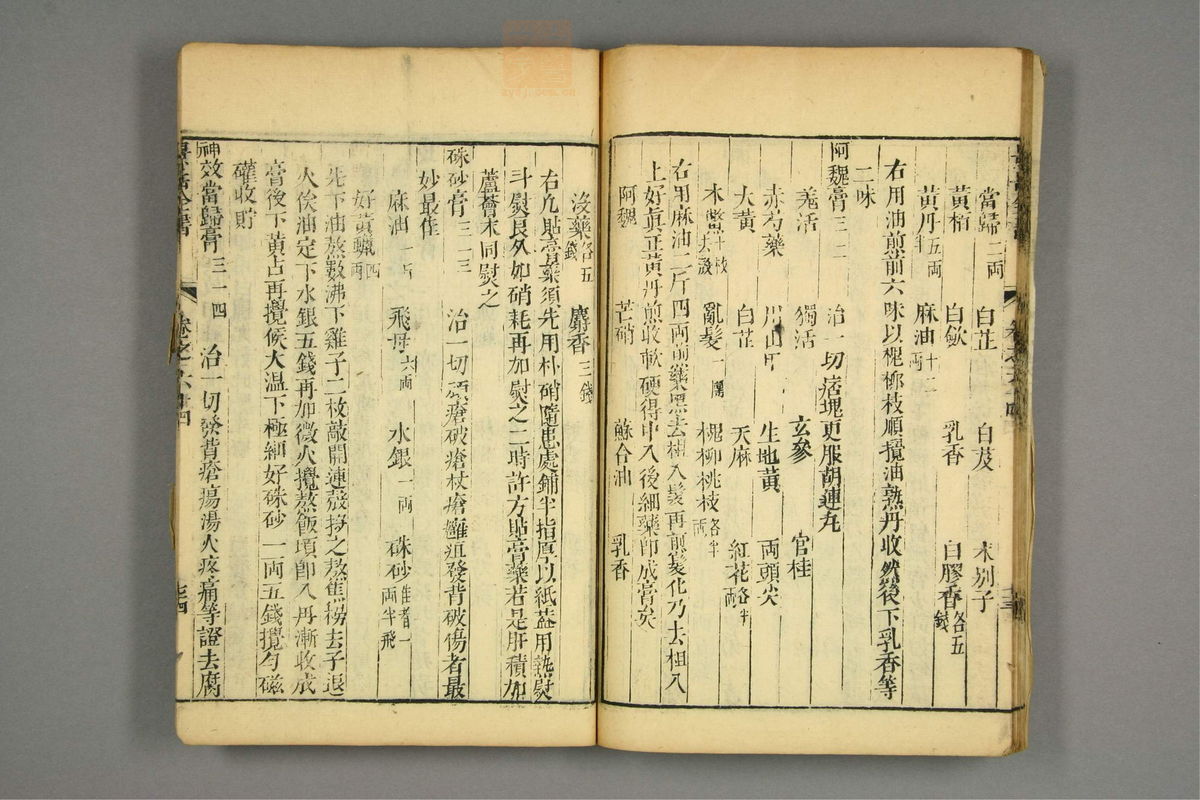 當歸二兩 白芷 白芨 木別子
黃栢 白歛 乳香 白膠香各五錢
黃丹五兩半 麻油十二兩
右用油煎前六味以槐柳枝順攪油熟丹收然後下乳香等
二味
阿魏膏三一二 治一切痞塊更服胡連丸
羌活 獨活 玄參 官桂
赤芍藥 川山甲 生地黃 兩頭尖
大黃 白芷 天麻 紅花各半兩
木鱉十枚去殼 亂髮一團 槐柳桃枝各半兩
右用麻油二斤四兩煎藥黑去柤入髮再煎髮化乃去柤入
上好眞正黃丹煎收軟硬得中入後細藥卽成膏矣
阿魏 芒硝 蘇合油 乳香
沒藥各五錢 麝香三錢
右凡貼膏藥須先用朴硝隨患處鋪半指厚以紙蓋用熱熨
斗熨良久如硝耗再加熨之二時許方貼膏藥若是肝積加
蘆薈末同熨之
硃砂膏三一三 治一切頑瘡破瘡杖瘡癰疽發背破傷者最
妙最佳
麻油一斤 飛丹六兩 水銀一兩 硃砂佳者一兩半飛
好黃蠟四兩
先下油熬數沸下雞子二枚敲開連殼投之熬焦撈去子退
火俟油定下水銀五錢再加微火攪熬飯頃卽入丹漸收成
膏後下黃占再攪候大溫下極細好硃砂一兩五錢攪勻磁
礶收貯
神效當歸膏三一四 治一切發背瘡瘍湯火疼痛等證去腐
景岳全書 卷之六十四 七十四